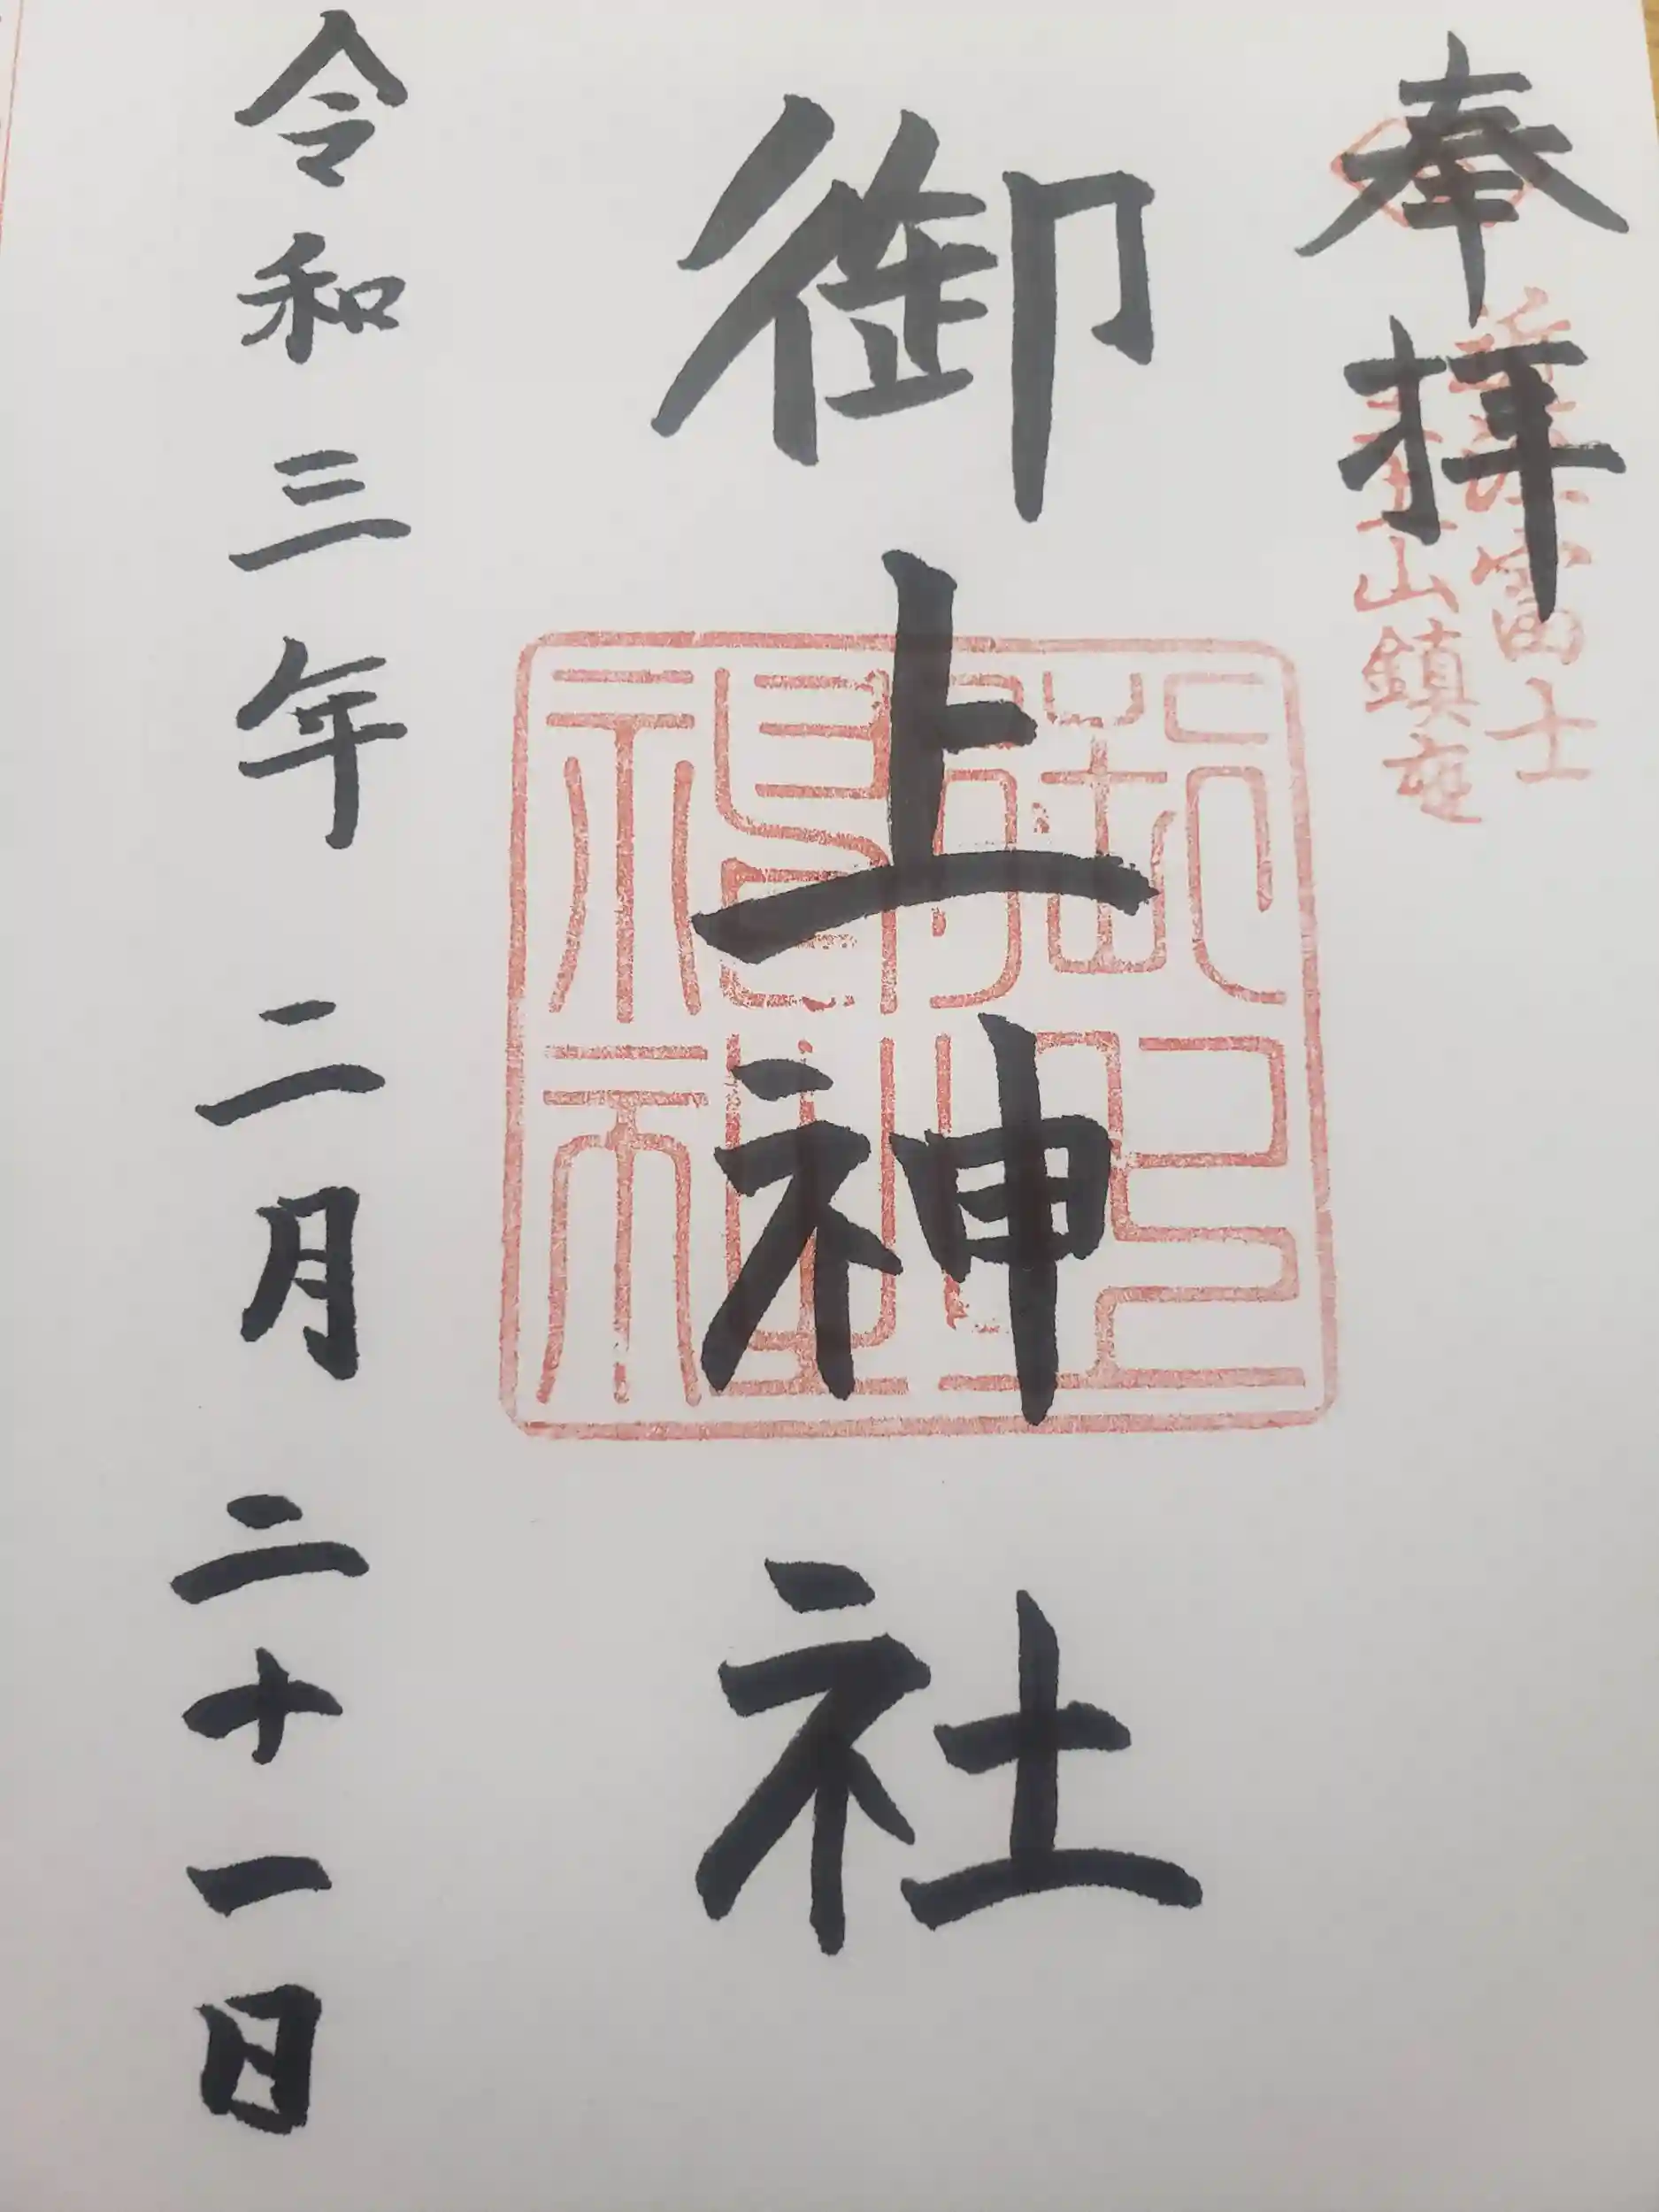 奉拝
富士
山鎮座
御上神社
令和三年二月二十一日